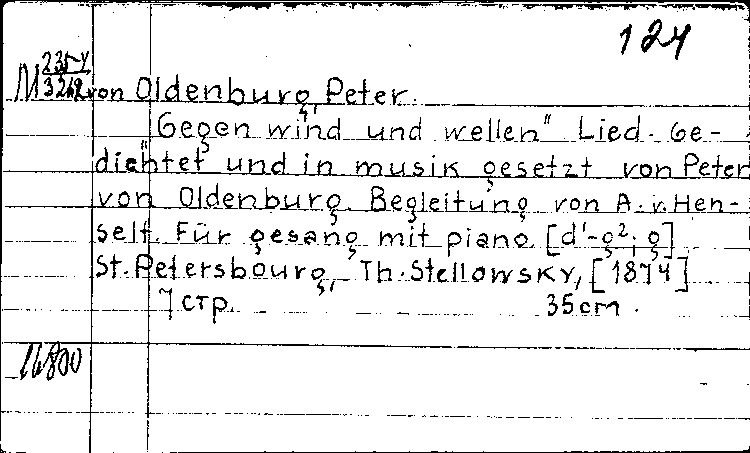 124
M 2354/3262 von Oldenburg, Peter.
"Gegen wind und wellen" Lied. Ge-
dichtet und in musik gesetzt von Peter
von Oldenburg. Begleitung von A. v. Hen-
selt. Für gesang mit piano. [d'-g²; g]
St. Petersbourg, Th. Stellowsky, [1874]
7 стр. 35 cm.
16800